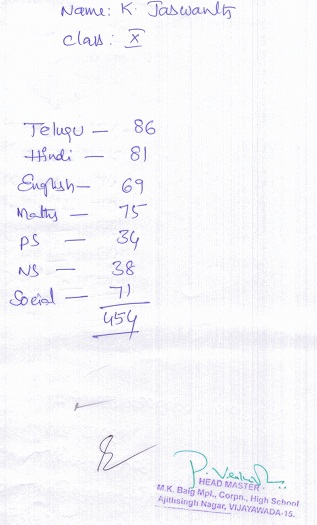 Name: K. Jaswanth
Class: X
Telugu — 86
Hindi — 81
English — 69
Maths — 75
PS — 34
NS — 38
Social — 71
454
HEAD MASTER
M.K. Baig Mpl., Corpn., High School
Ajithsingh Nagar, VIJAYAWADA-15.